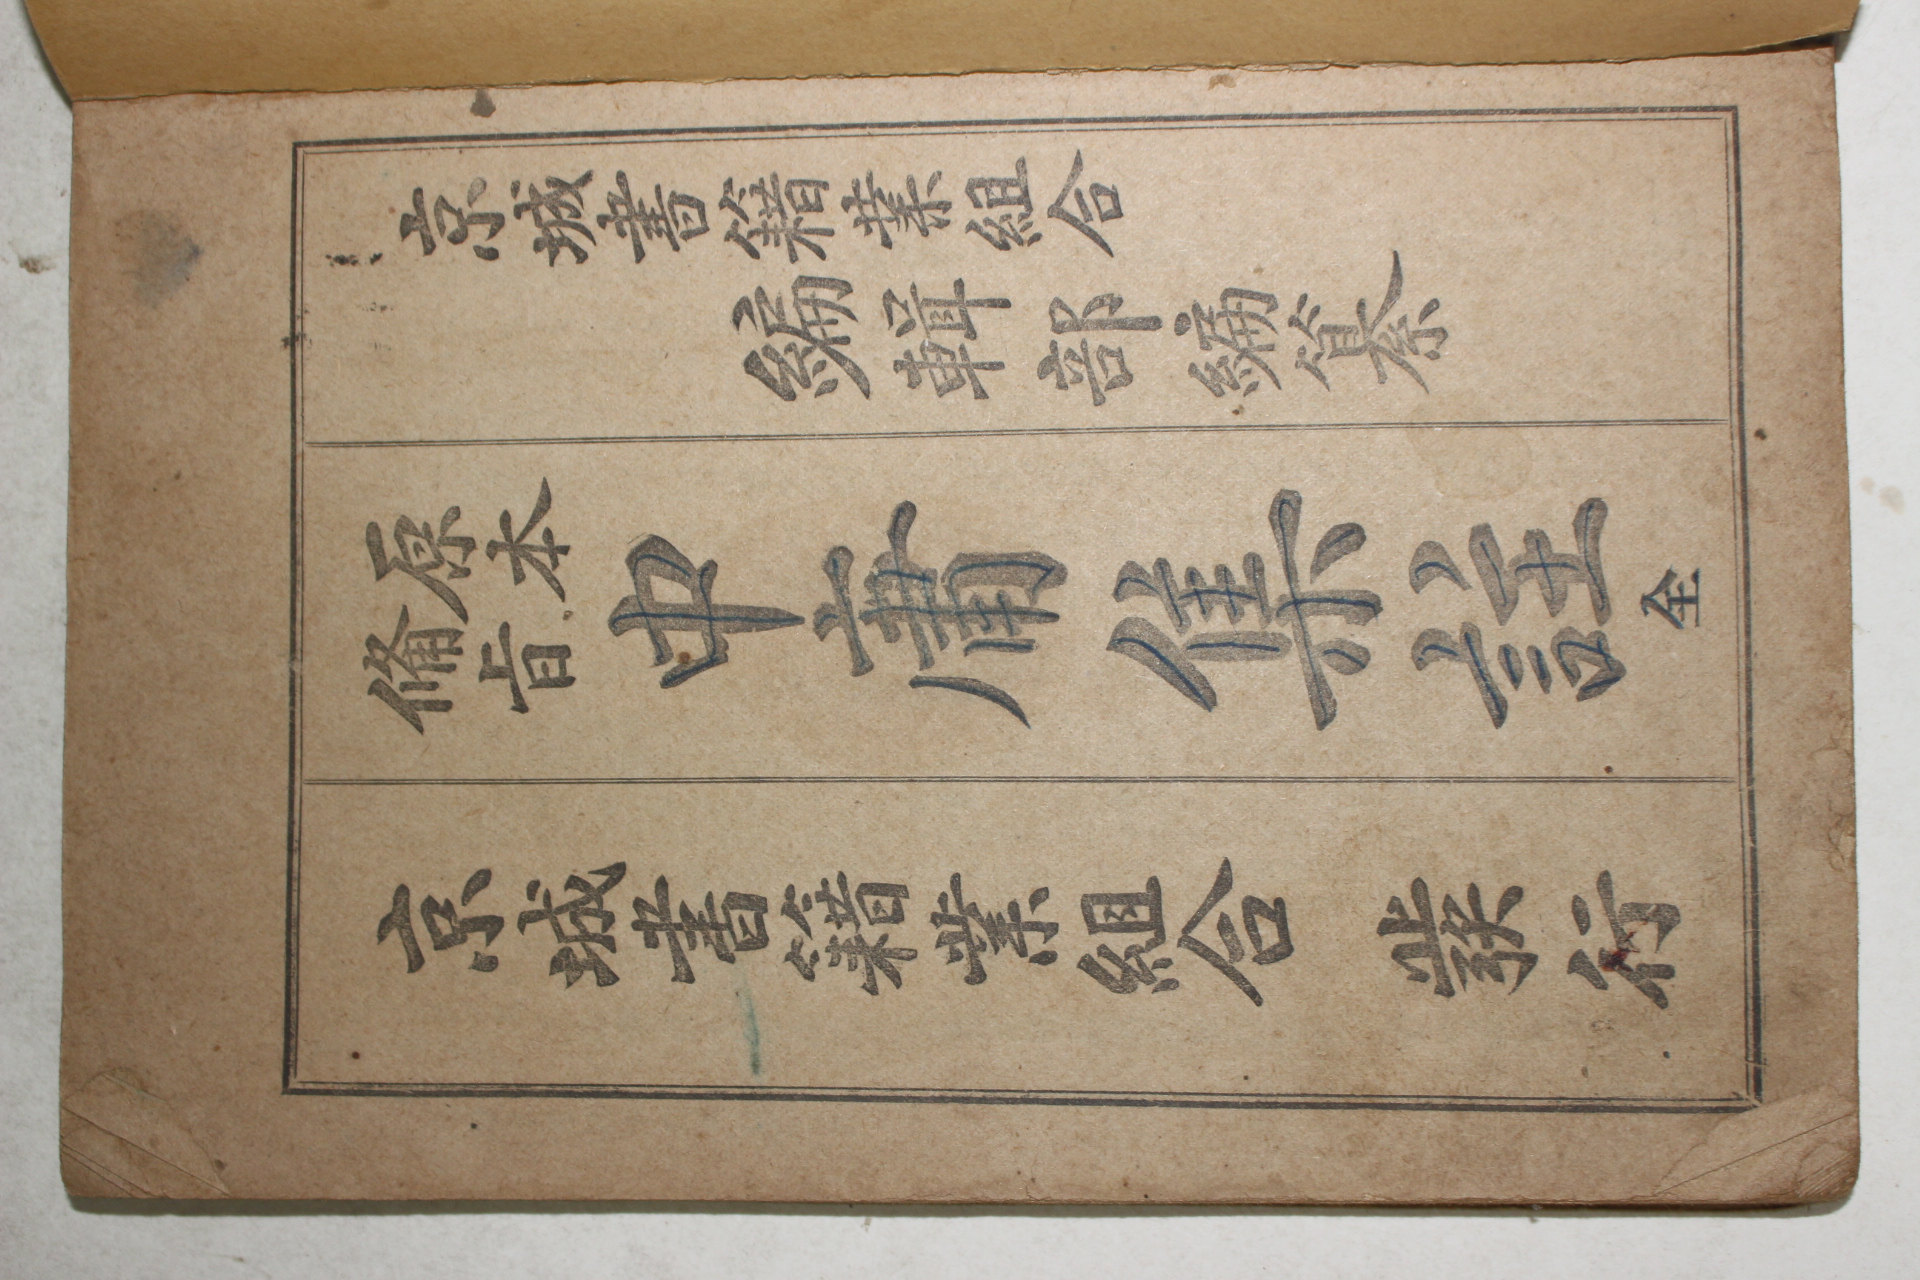 京城書籍業組合
編輯部編纂
原本
備旨
中庸集註 全
京城書籍業組合 發行